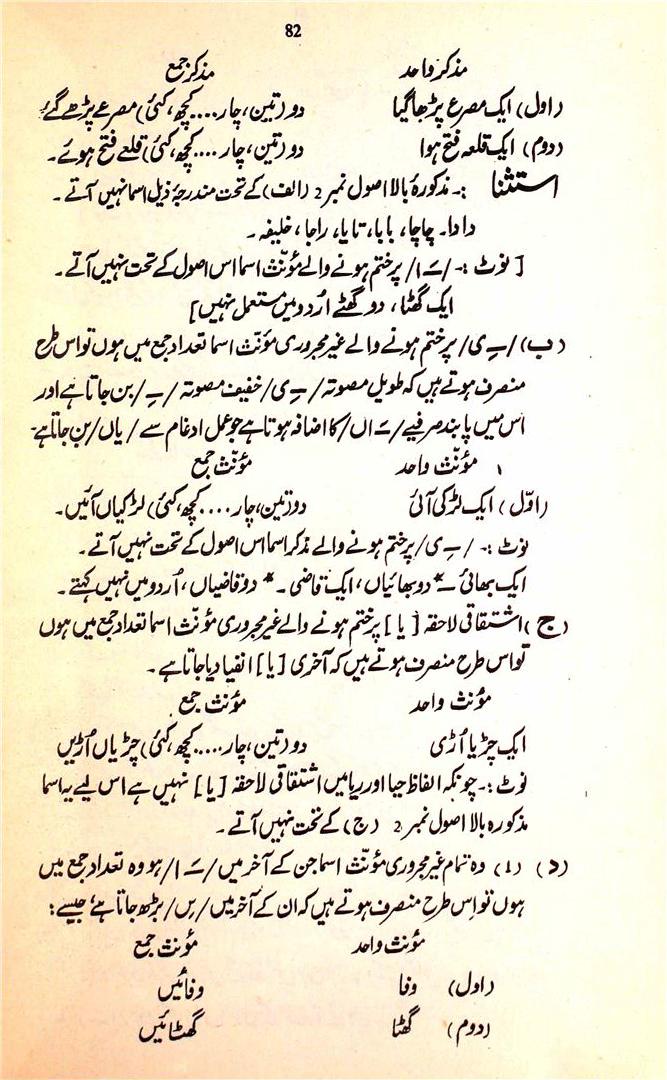 82
مذکر واحد مذکر جمع
(اول) ایک مصرع پڑھا گیا دو (تین، چار .... کچھ، کئی) مصرعے پڑھے گئے
(دوم) ایک قلعہ فتح ہوا دو (تین، چار .... کچھ، کئی) قلعے فتح ہوئے۔
استثنا :۔ مذکورۂ بالا اصول نمبر 2 (الف) کے تحت مندرجۂ ذیل اسما نہیں آتے۔
دادا۔ چاچا، بابا، تایا، راجا، خلیفہ۔
[ نوٹ :۔ /ــَـ ا/ پر ختم ہونے والے مؤنّث اسما اس اصول کے تحت نہیں آتے۔
ایک گھٹا، دو گھٹے اردو میں مستعمل نہیں]
(ب) /ــِـ ی/ پر ختم ہونے والے غیر مجروری مؤنّث اسما تعداد جمع میں ہوں تو اس طرح
منصرف ہوتے ہیں کہ طویل مصوتہ /ــِـ ی/ خفیف مصوتہ /ــِـ/ بن جاتا ہے اور
اس میں پابند صرفیے /ــَـ اں/ کا اضافہ ہوتا ہے جو عمل ادغام سے /یاں/ بن جاتا ہے۔
مؤنّث واحد مؤنّث جمع
(اوّل) ایک لڑکی آئی دو (تین، چار .... کچھ، کئی) لڑکیاں آئیں۔
نوٹ :۔ /ــِـ ی/ پر ختم ہونے والے مذکر اسما اس اصول کے تحت نہیں آتے۔
ایک بھائی ـ * دو بھائیاں، ایک قاضی ۔ * دو قاضیاں، اُردو میں نہیں کہتے۔
(ج) اشتقاقی لاحقہ [یا] پر ختم ہونے والے غیر مجروری مؤنّث اسما تعداد جمع میں ہوں
تو اس طرح منصرف ہوتے ہیں کہ آخری [یا] انفیا دیا جاتا ہے۔
مؤنث واحد مؤنث جمع
ایک چڑیا اُڑی دو (تین، چار ..... کچھ، کئی) چڑیاں اُڑیں
نوٹ :۔ چونکہ الفاظ حیا اور ریا میں اشتقاقی لاحقہ [یا] نہیں ہے اس لیے یہ اسما
مذکورہ بالا اصول نمبر 2 (ج) کے تحت نہیں آتے۔
(د) (۱) وہ تمام غیر مجروری مؤنّث اسما جن کے آخر میں /ــَـ ا/ ہو وہ تعداد جمع میں
ہوں تو اِس طرح منصرف ہوتے ہیں کہ ان کے آخر میں /یں/ بڑھ جاتا ہے، جیسے؛
مؤنث واحد مؤنث جمع
(اول) وفا وفائیں
(دوم) گھٹا گھٹائیں